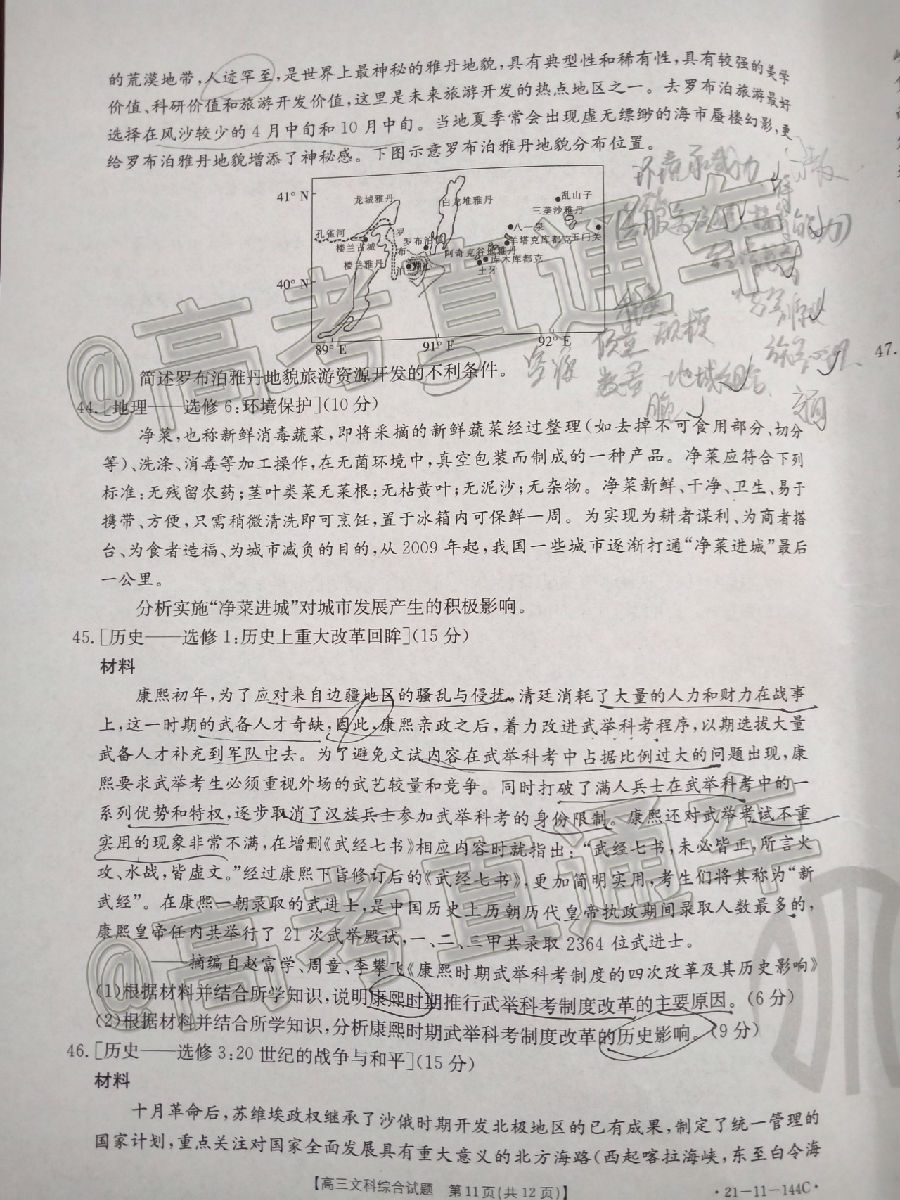 的荒漠地带,人迹罕至,是世界上最神秘的雅丹地貌,具有典型性和稀有性,具有较强的美学
价值、科研价值和旅游开发价值,这里是未来旅游开发的热点地区之一。去罗布泊旅游最好
选择在风沙较少的4月中旬和10月中旬。当地夏季常会出现虚无缥缈的海市蜃楼幻影,更
给罗布泊雅丹地貌增添了神秘感。下图示意罗布泊雅丹地貌分布位置。
41° N
龙城雅丹
白龙堆雅丹
乱山子
三垄沙雅丹
孔雀河
楼兰古城
罗布泊
罗布泊镇
八一泉
羊塔克库都克
玉门关
楼兰雅丹
阿奇克谷地雅丹
库木库都克
土牙
40° N
89° E
91° E
92° E
环境承载力
@高考直通车
简述罗布泊雅丹地貌旅游资源开发的不利条件。
44. [地理——选修6:环境保护](10分)
净菜,也称新鲜消毒蔬菜,即将采摘的新鲜蔬菜经过整理(如去掉不可食用部分、切分
等)、洗涤、消毒等加工操作,在无菌环境中,真空包装而制成的一种产品。净菜应符合下列
标准:无残留农药;茎叶类菜无菜根;无枯黄叶;无泥沙;无杂物。净菜新鲜、干净、卫生、易于
携带、方便,只需稍微清洗即可烹饪,置于冰箱内可保鲜一周。为实现为耕者谋利、为商者搭
台、为食者造福、为城市减负的目的,从2009年起,我国一些城市逐渐打通“净菜进城”最后
一公里。
分析实施“净菜进城”对城市发展产生的积极影响。
45. [历史——选修1:历史上重大改革回眸](15分)
材料
康熙初年,为了应对来自边疆地区的骚乱与侵扰,清廷消耗了大量的人力和财力在战事
上,这一时期的武备人才奇缺,因此,康熙亲政之后,着力改进武举科考程序,以期选拔大量
武备人才补充到军队中去。为了避免文试内容在武举科考中占据比例过大的问题出现,康
熙要求武举考生必须重视外场的武艺较量和竞争。同时打破了满人兵士在武举科考中的一
系列优势和特权,逐步取消了汉族兵士参加武举科考的身份限制。康熙还对武举考试不重
实用的现象非常不满,在增删《武经七书》相应内容时就指出:“武经七书,未必皆正,所言火
攻、水战,皆虚文。”经过康熙下旨修订后的《武经七书》,更加简明实用,考生们将其称为“新
武经”。在康熙一朝录取的武进士,是中国历史上历朝历代皇帝执政期间录取人数最多的,
康熙皇帝任内共举行了21次武举殿试,一、二、三甲共录取2364位武进士。
——摘编自赵富学、周童、李攀飞《康熙时期武举科考制度的四次改革及其历史影响》
@高考直通车
(1)根据材料并结合所学知识,说明康熙时期推行武举科考制度改革的主要原因。(6分)
(2)根据材料并结合所学知识,分析康熙时期武举科考制度改革的历史影响。(9分)
46. [历史——选修3:20世纪的战争与和平](15分)
材料
十月革命后,苏维埃政权继承了沙俄时期开发北极地区的已有成果,制定了统一管理的
国家计划,重点关注对国家全面发展具有重大意义的北方海路(西起喀拉海峡,东至白令海
【高三文科综合试题 第11页(共12页)】
·21-11-144C·
47.